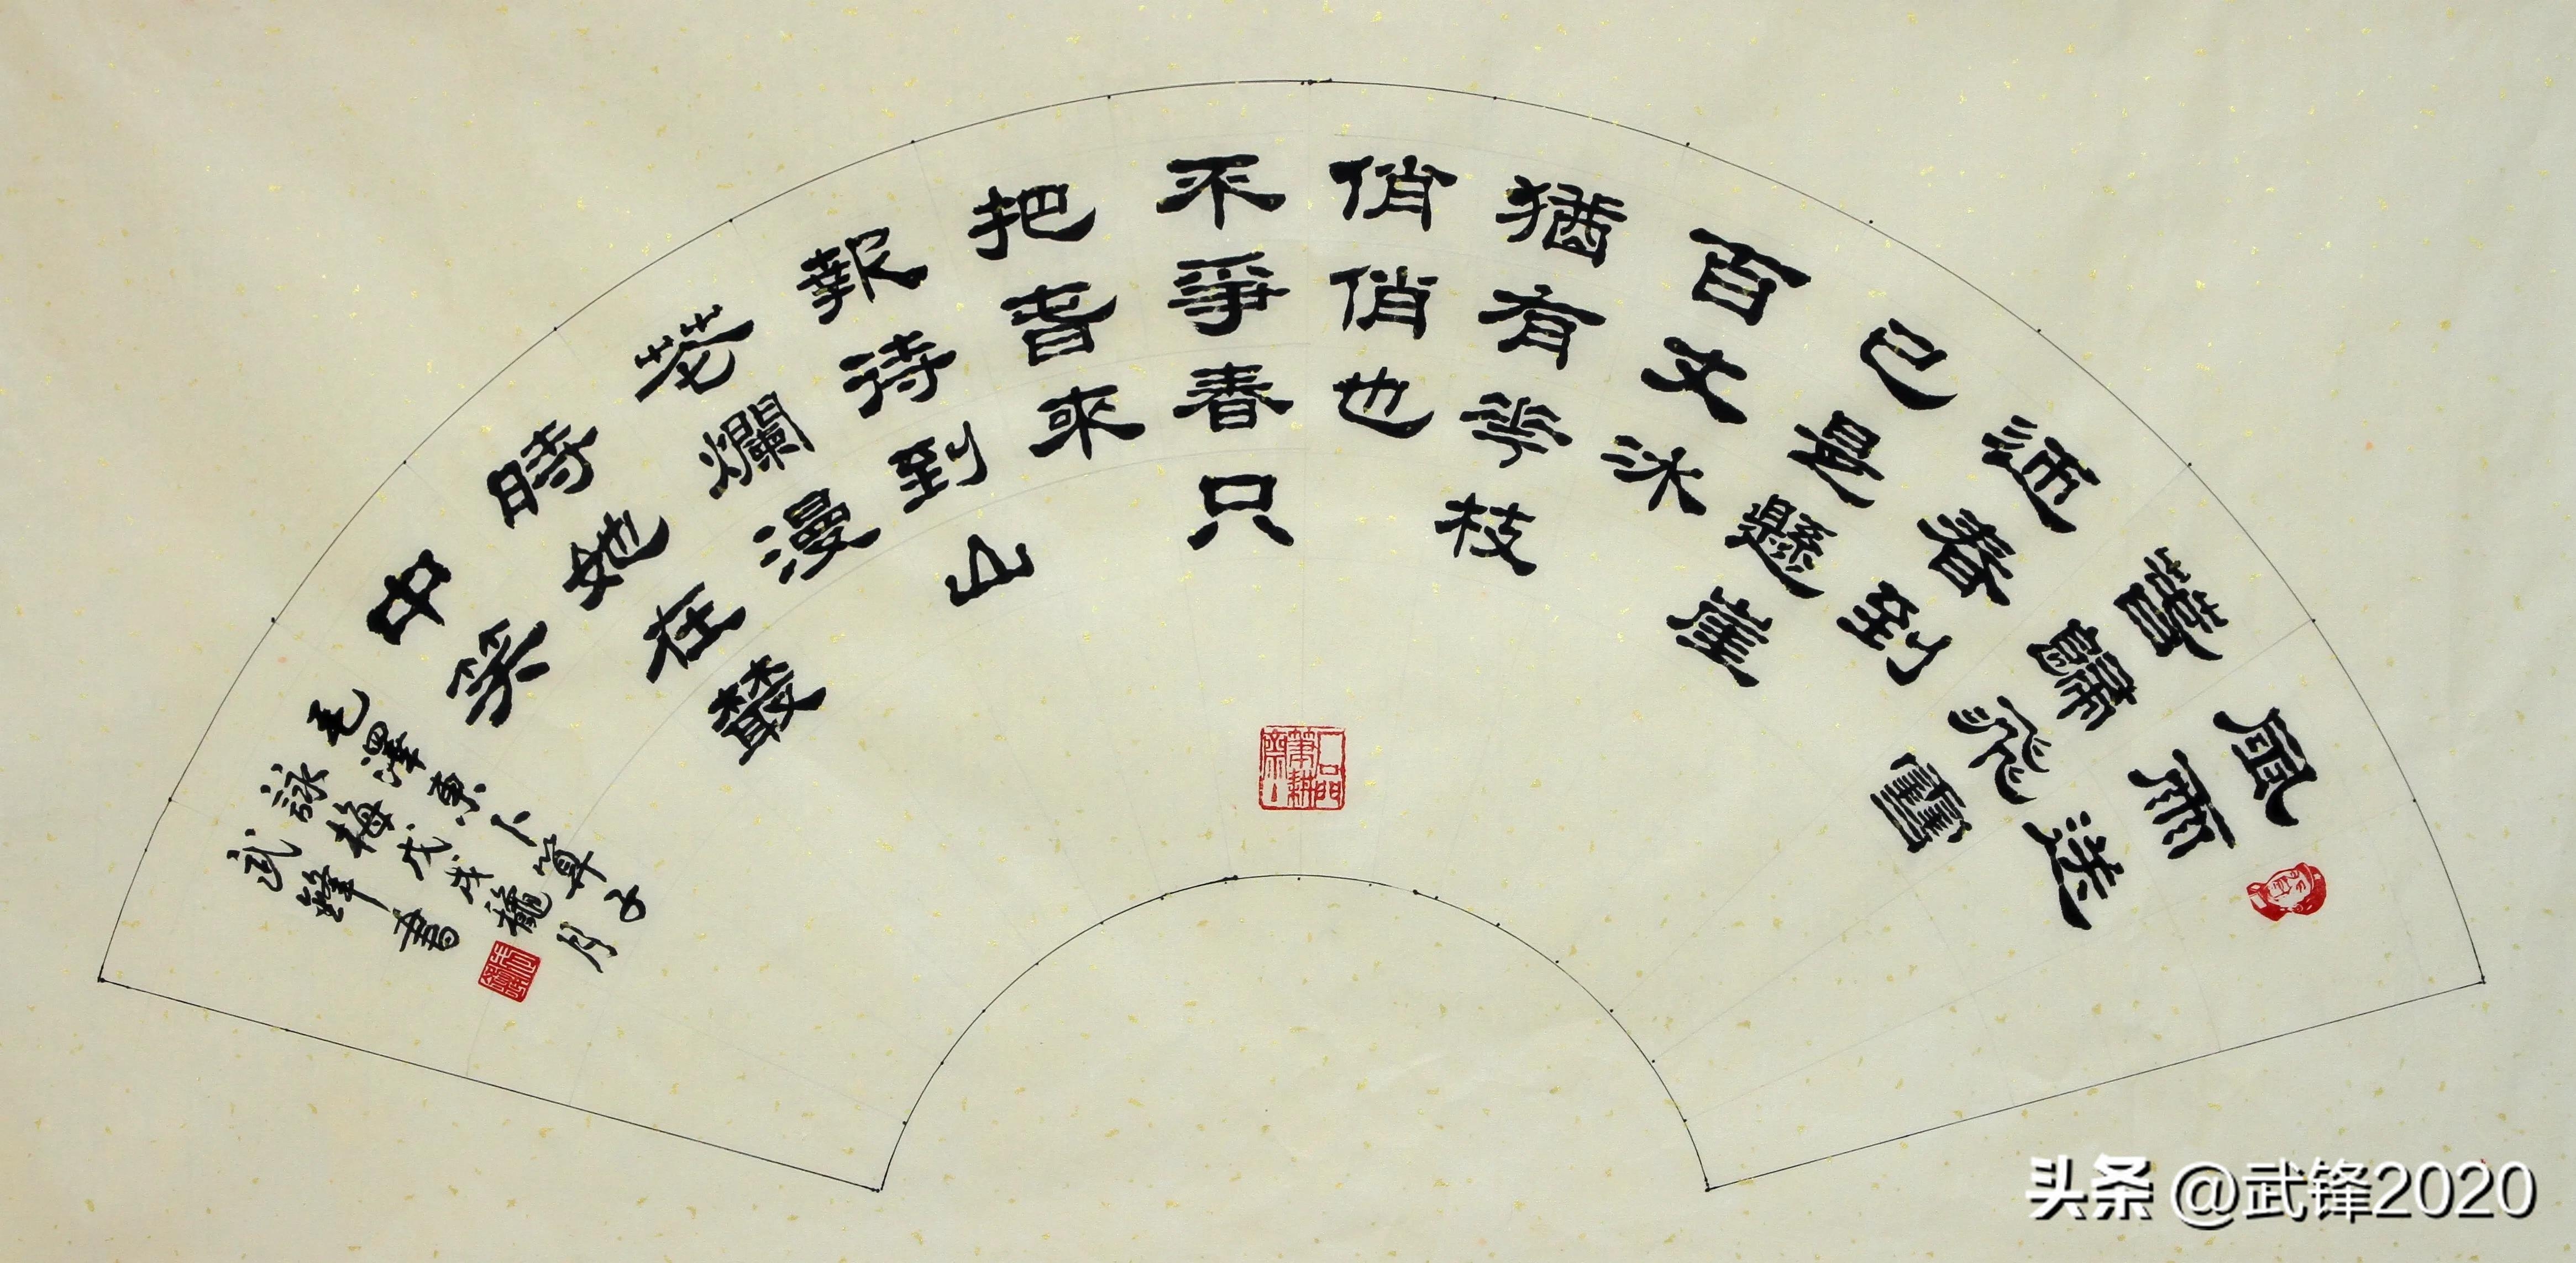 風雨送
春歸飛雪
迎春到
已是懸崖
百丈冰
猶有華枝
俏俏也
不爭春只
把春來
報待到山
花爛漫
時她在叢
中笑
毛澤東卜算子
詠梅戊戌龝月
武鋒書
头条 @武锋2020